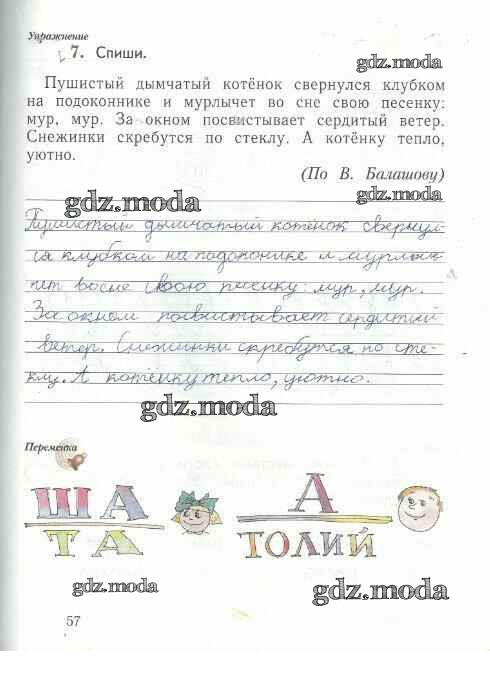 Упражнение
7. Спиши.
gdz.moda
Пушистый дымчатый котёнок свернулся клубком
на подоконнике и мурлычет во сне свою песенку:
мур, мур. За окном посвистывает сердитый ветер.
Снежинки скребутся по стеклу. А котёнку тепло,
уютно.
(По В. Балашову)
gdz.moda
gdz.moda
Пушистый дымчатый котёнок свернул-
ся клубком на подоконике и мурлы-
чет во сне свою песенку: мур, мур.
За окном посвистывает сердитый
ветер. Снежинки скребутся по сте-
клу. А котёнку тепло, уютно.
gdz.moda
Переменка
ША
ТА
А
ТОЛИЙ
gdz.moda
gdz.moda
57